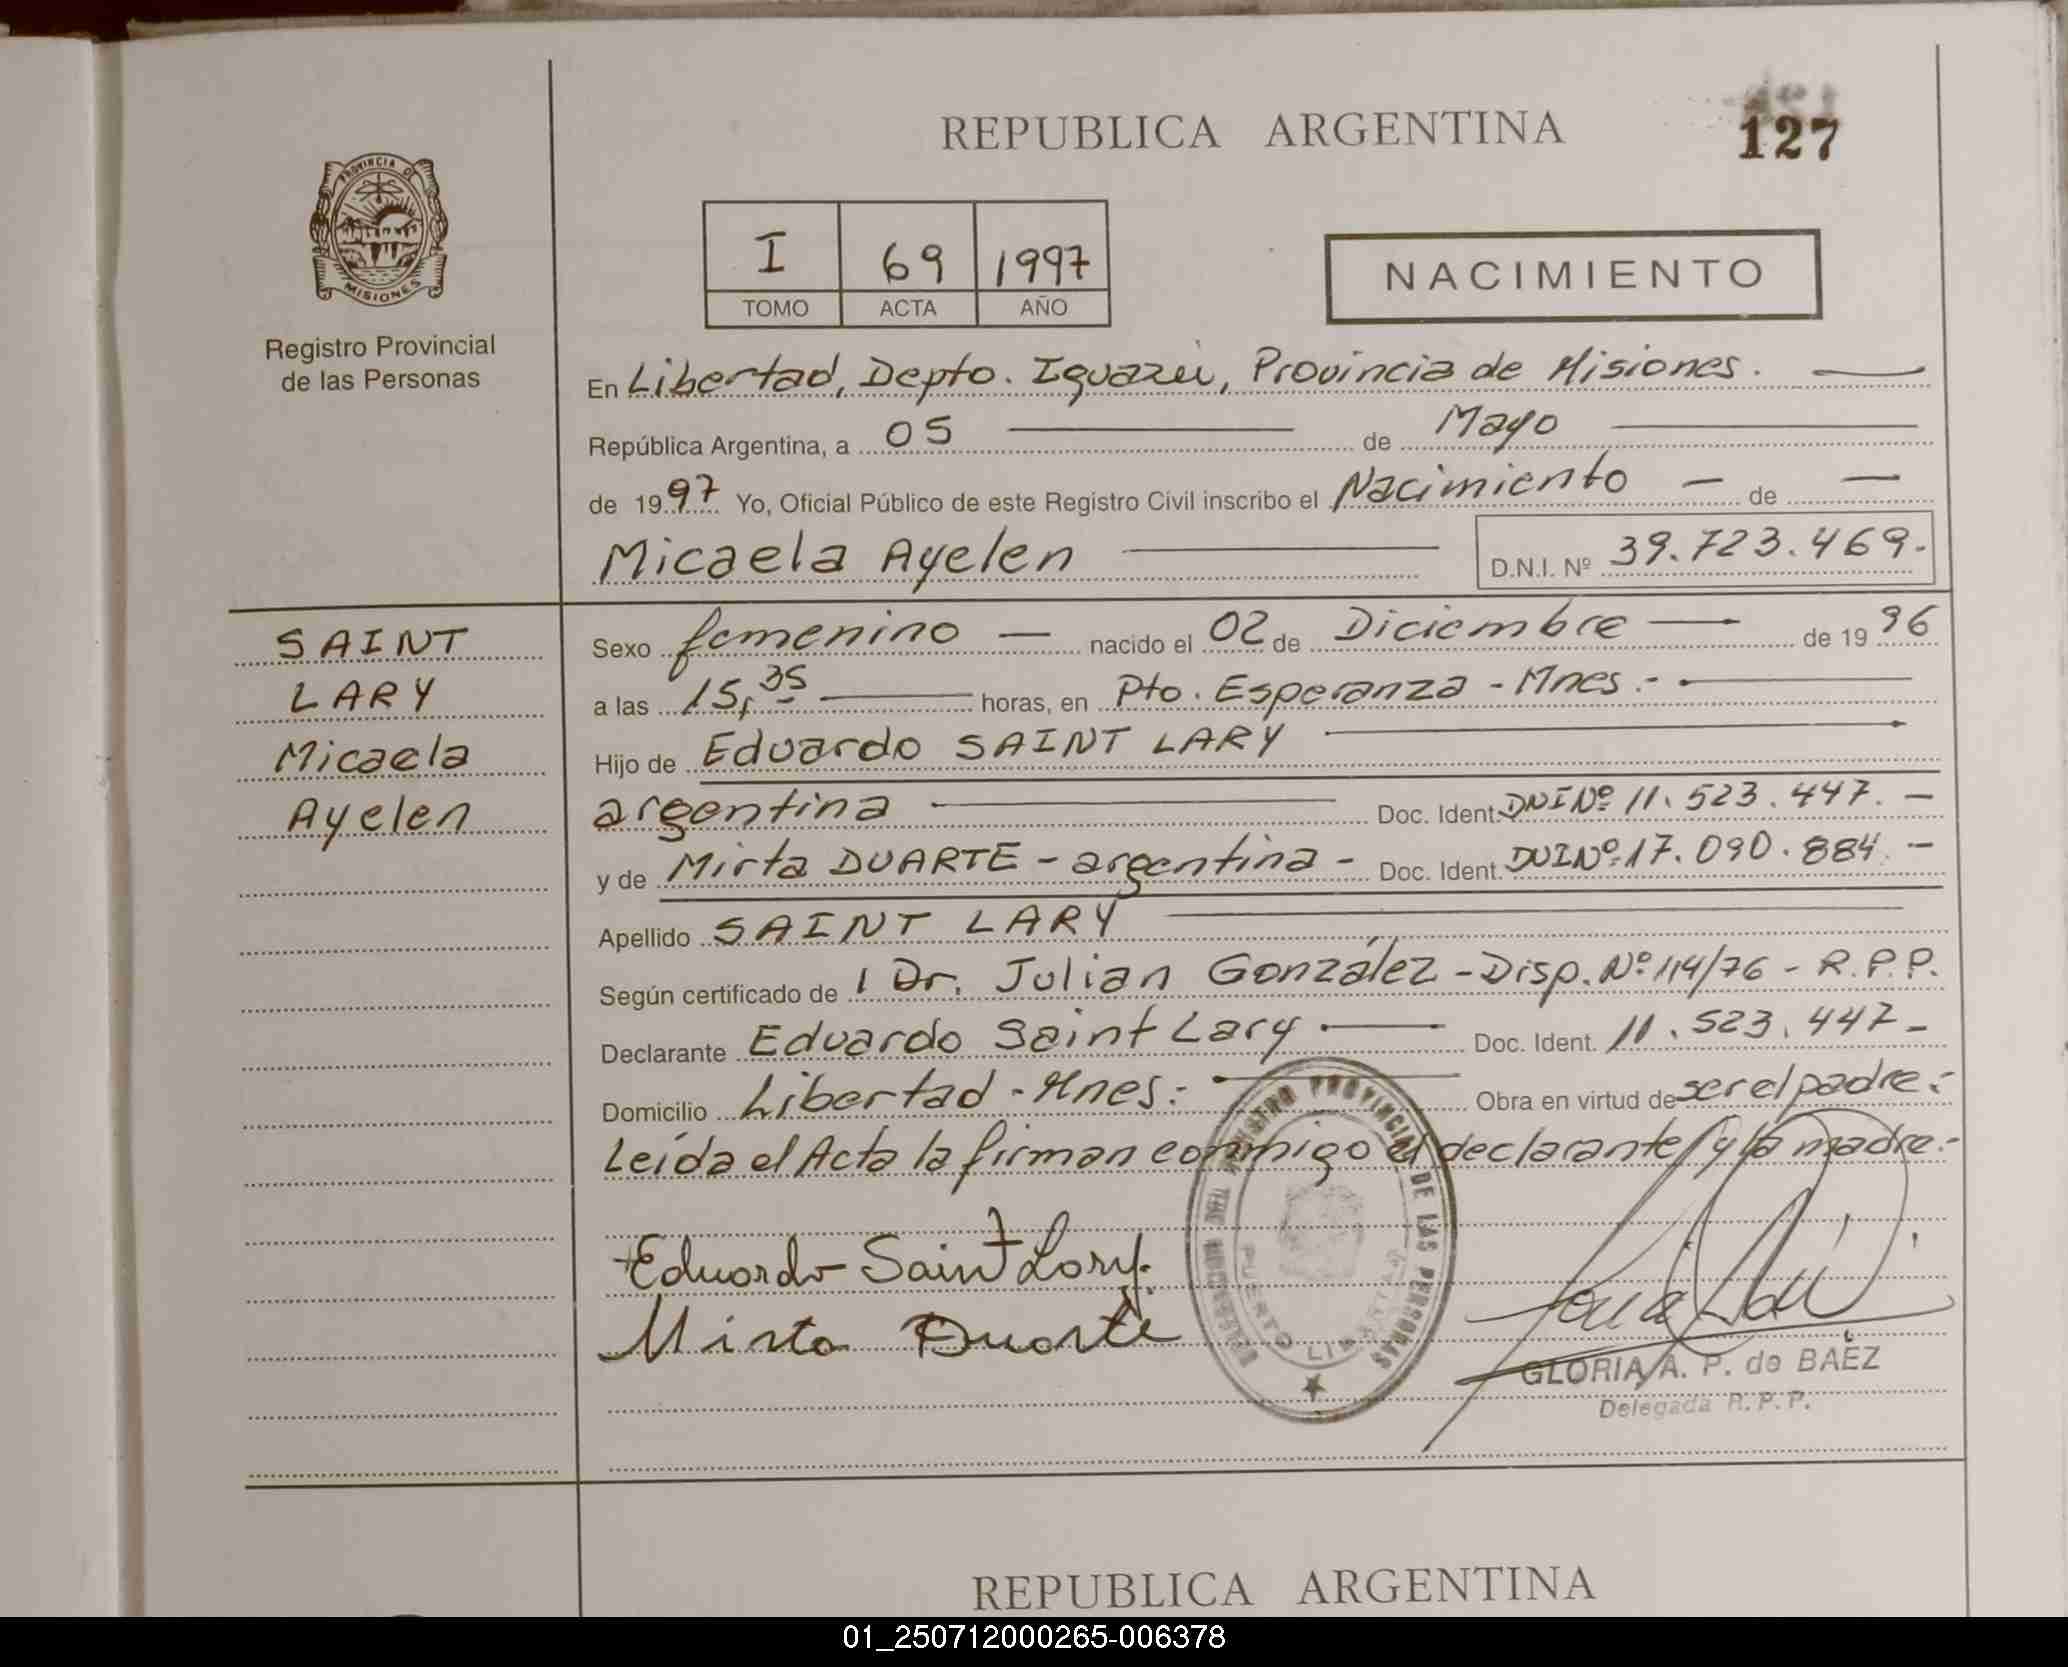 REPUBLICA ARGENTINA
127
PROVINCIA DE
MISIONES
Registro Provincial
de las Personas
I 69 1997
TOMO ACTA AÑO
NACIMIENTO
En Libertad, Depto. Iguazú, Provincia de Misiones.
República Argentina, a 05 de Mayo
de 1997 Yo, Oficial Público de este Registro Civil inscribo el Nacimiento - de -
Micaela Ayelen D.N.I. Nº 39.723.469.-
SAINT
LARY
Micaela
Ayelen
Sexo femenino — nacido el 02 de Diciembre — de 1996
a las 15,35 horas, en Pto. Esperanza - Mnes.-
Hijo de Eduardo SAINT LARY
argentina Doc. Ident. DNI Nº 11.523.447. -
y de Mirta DUARTE - argentina - Doc. Ident. DNI Nº 17.090.884. -
Apellido SAINT LARY
Según certificado de 1 Dr. Julian González - Disp. Nº 114/76 - R.P.P.
Declarante Eduardo Saint Lary Doc. Ident. 11.523.447-
Domicilio Libertad - Mnes.- Obra en virtud de ser el padre.-
Leída el Acta la firman conmigo el declarante y la madre.-
Eduardo Saint Lary.
Mirta Duarte
REGISTRO PROVINCIAL DE LAS PERSONAS
PUERTO LIBERTAD
GLORIA A. P. de BAEZ
Delegada R.P.P.
REPUBLICA ARGENTINA
01_250712000265-006378